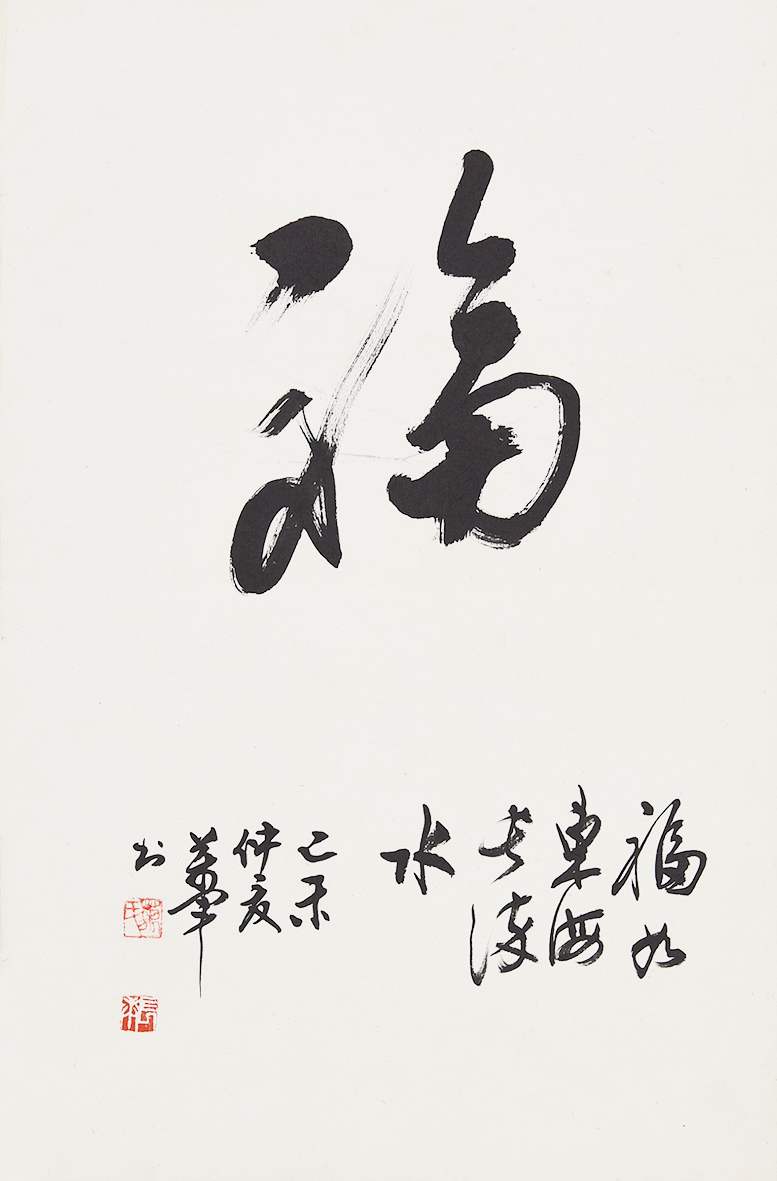 福
福如
東海
長流
水
己未
仲夏
華
书